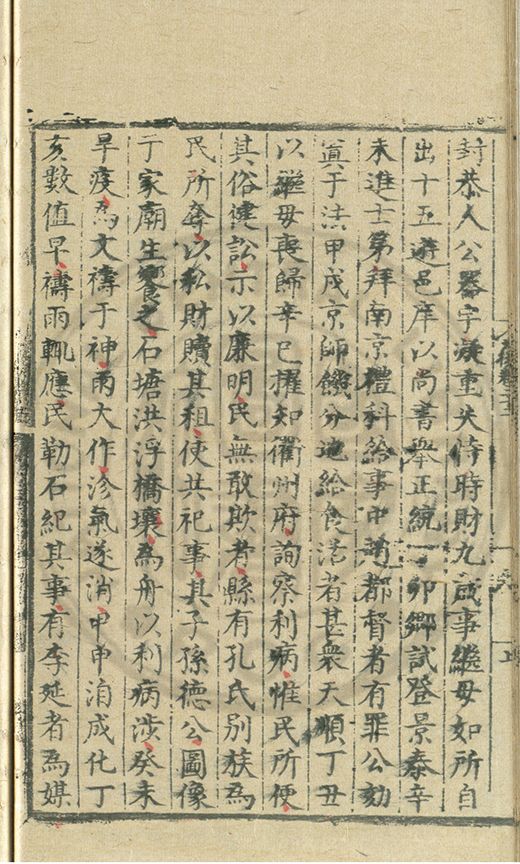 封恭人公器宇凝重失恃時財九歲事繼母如所自
出十五遊邑庠以尚書舉正統卯鄉試登景泰辛
未進士第拜南京禮科給事中都督者有罪公劾
寘于法甲戌京師饑分地給食活者甚衆天順丁丑
以繼母喪歸辛巳擢知衢州府詢察利病惟民所便
其俗健訟示以廉明民無敢欺者縣有孔氏別族為
民所奪以私財贖其租使共祀事其子孫德公圖像
于家廟生饗之石塘洪浮橋壞為舟以利病涉癸未
旱疫為文禱于神雨大作沴氣遂消甲申洎成化丁
亥數值旱禱雨輒應民勒石紀其事有李延者為媒